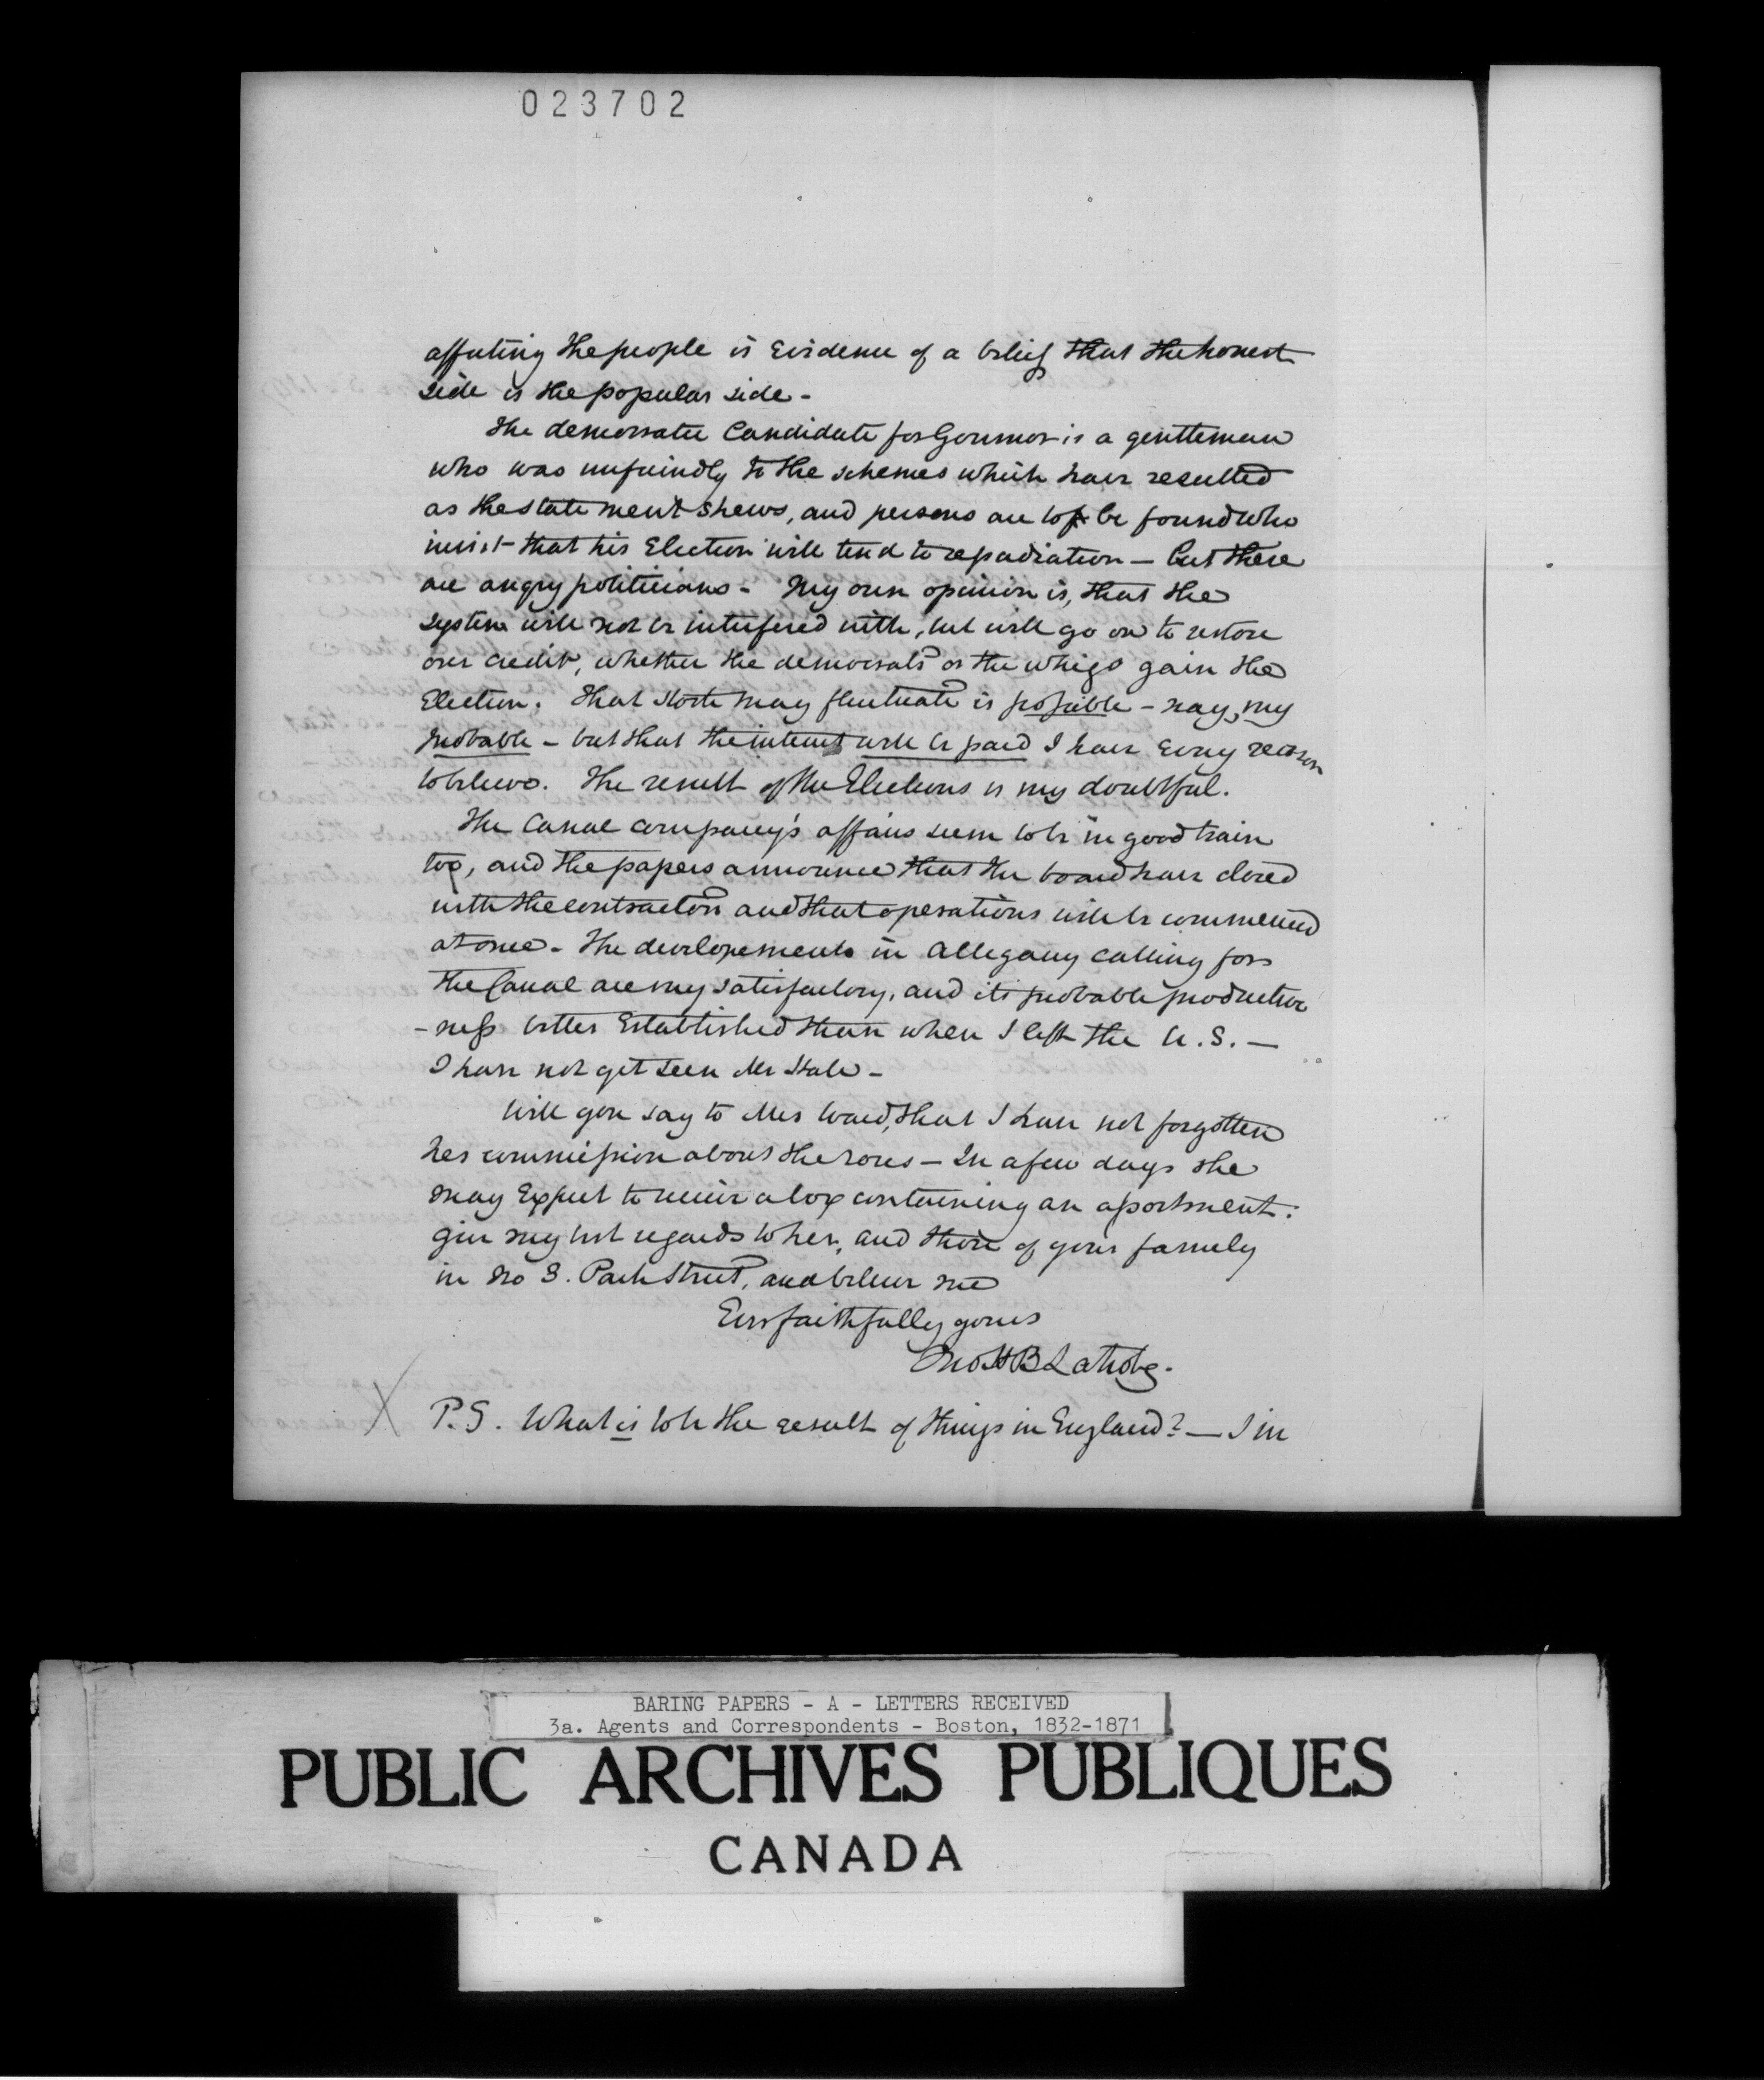 023702
affecting the people is evidence of a belief that the honest
side is the popular side -
The democratic Candidate for Governor is a gentleman
who was unfriendly to the schemes which have resulted
as the statement shews, and persons are to be found who
insist that his Election will tend to repudiation — but these
are angry politicians - My own opinion is, that the
system will not be interfered with, but will go on to restore
our credit, whether the democrats or the whigs gain the
Election. That stocks may fluctuate is possible - nay, very
probable - but that the interest will be paid I have every reason
to believe. The result of the Elections is very doubtful.
The Canal company's affairs seem to be in good train
too, and the papers announce that the board have closed
with the contractors and that operations will be commenced
at once - The developements in Allegany calling for
the Canal are very satisfactory, and its probable productive
-ness better Established than when I left the U.S. —
I have not yet seen Mr Hale -
Will you say to Mrs Ward, that I have not forgotten
her commission about the roses — In a few days she
may Expect to receive a box containing an assortment:
give my best regards to her, and those of your family
in No 3. Park Street, and believe me
Ever faithfully yours
Jno H B Latrobe.
P.S. What is to be the result of things in England? — I in
BARING PAPERS - A - LETTERS RECEIVED
3a. Agents and Correspondents - Boston, 1832-1871
PUBLIC ARCHIVES PUBLIQUES
CANADA